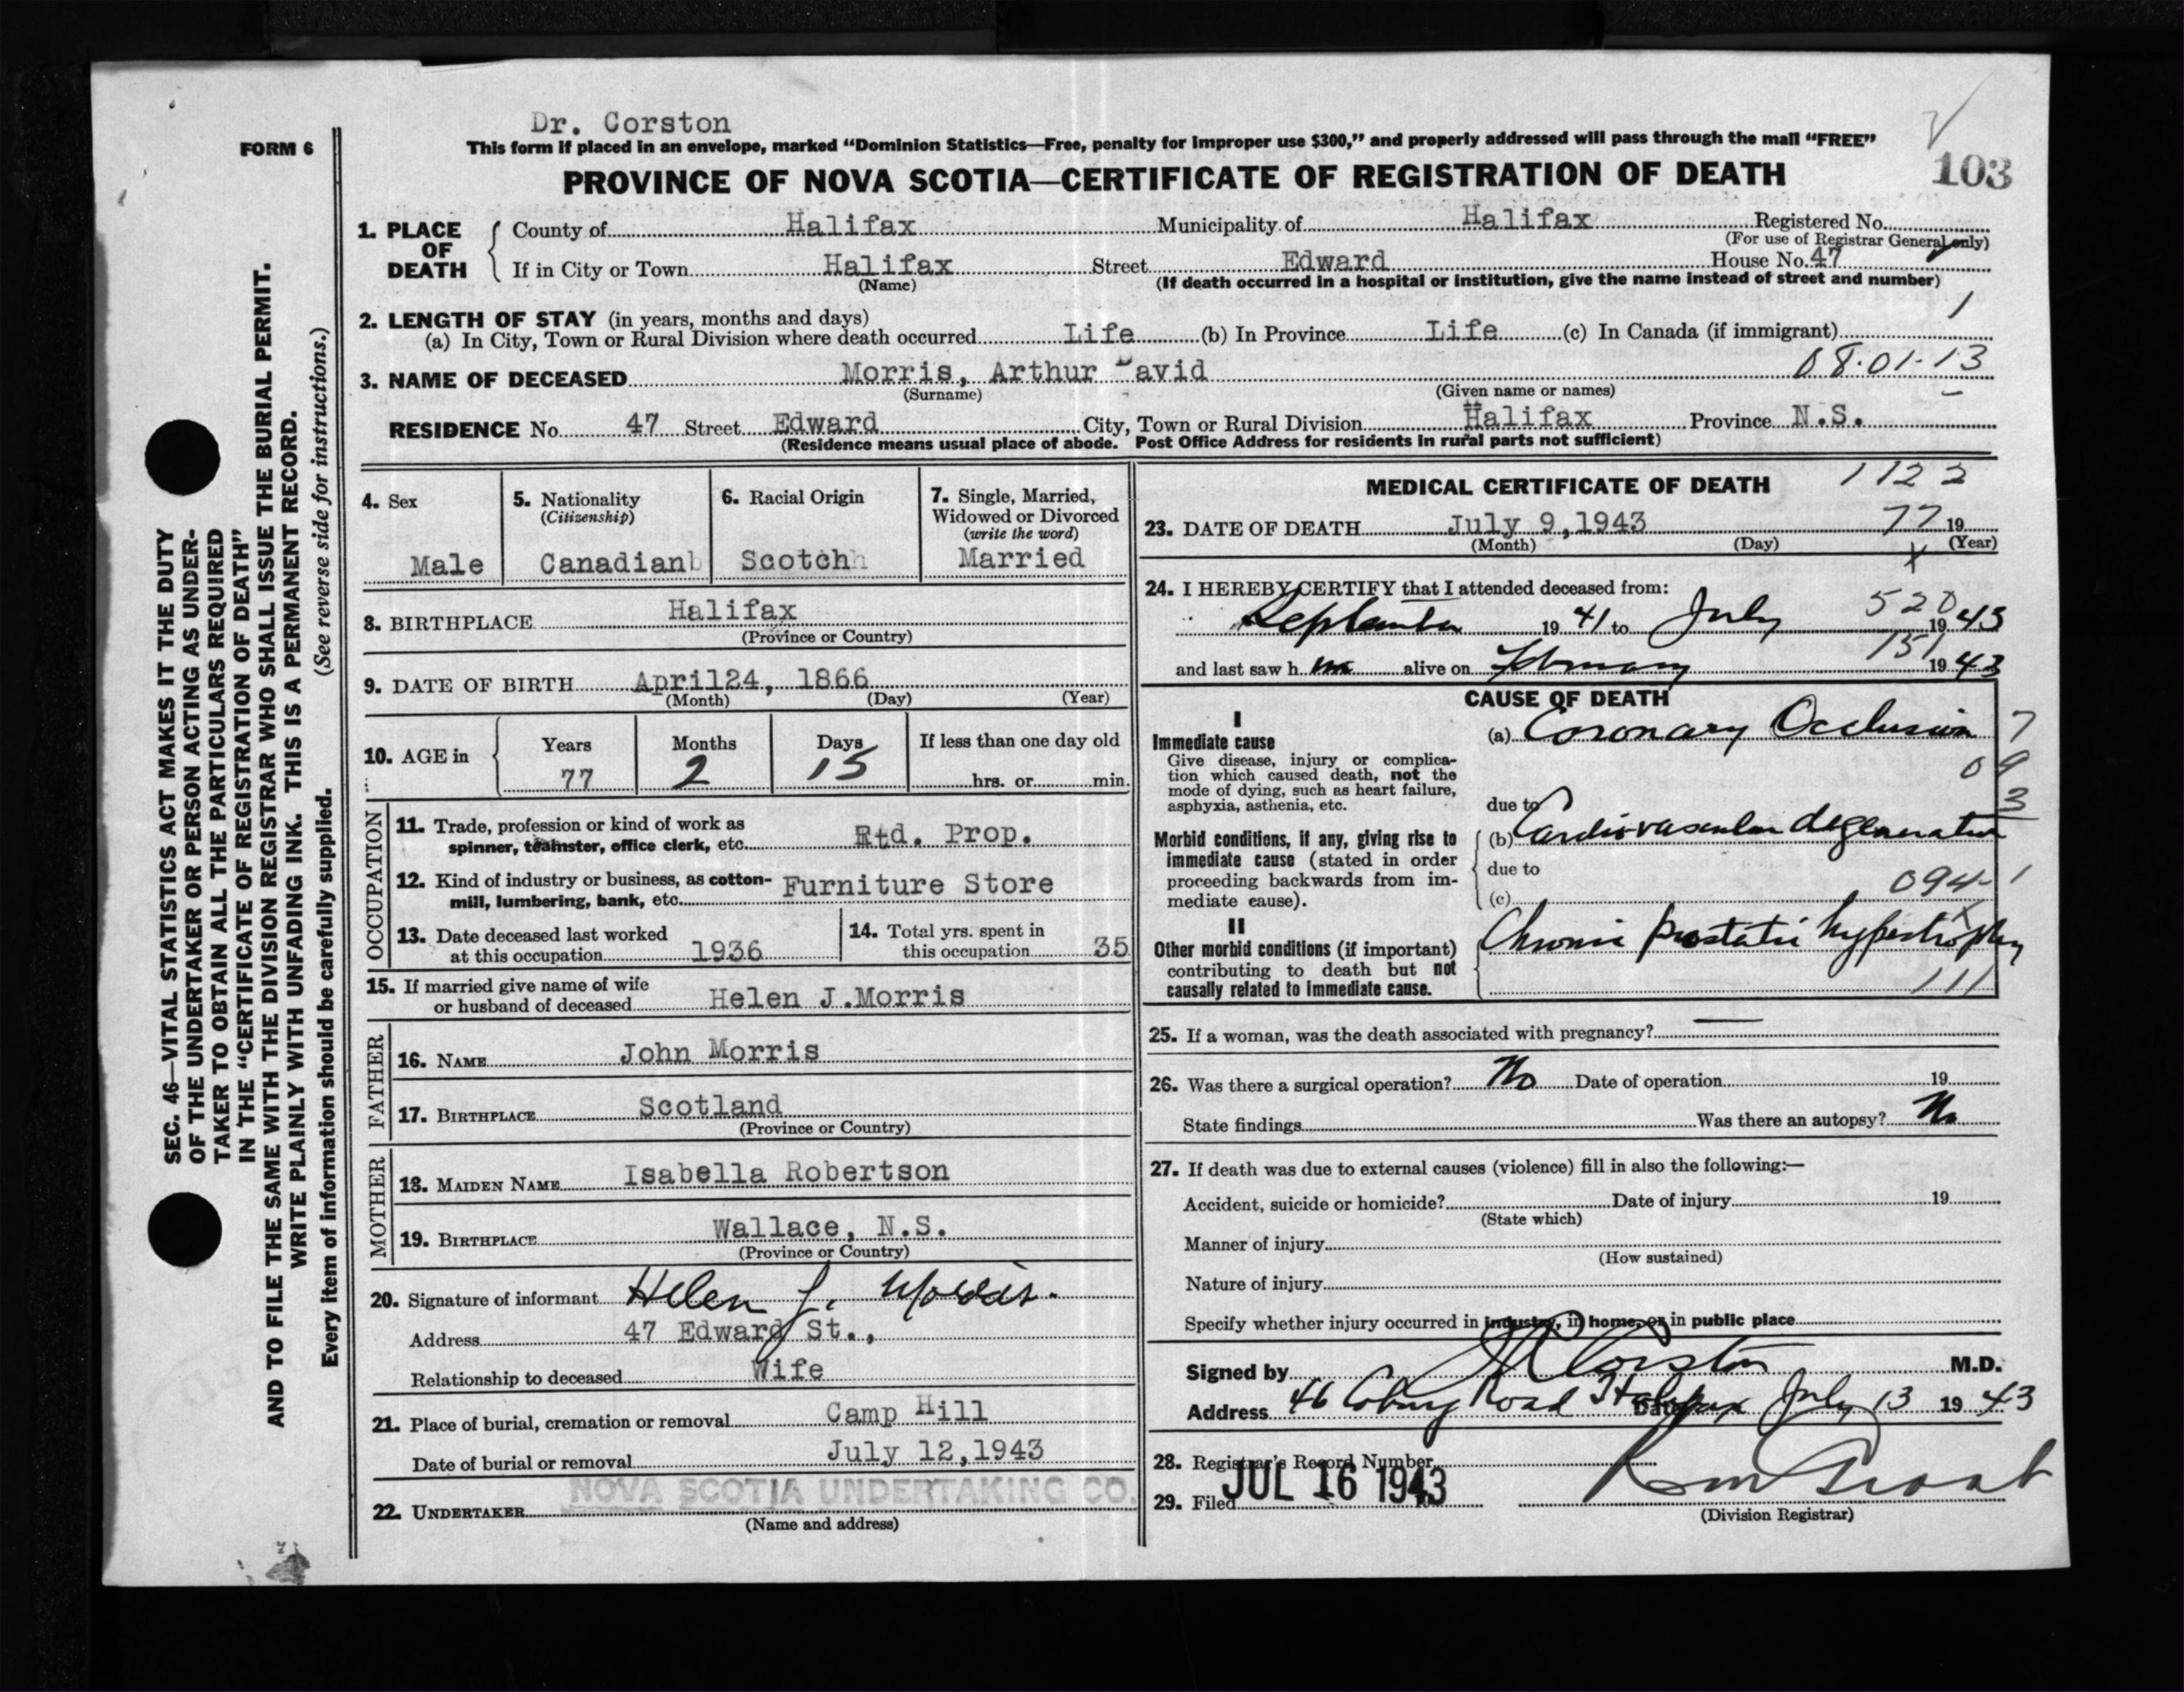 Dr. Corston
FORM 6
This form if placed in an envelope, marked “Dominion Statistics—Free, penalty for improper use $300,” and properly addressed will pass through the mail “FREE”
PROVINCE OF NOVA SCOTIA—CERTIFICATE OF REGISTRATION OF DEATH
103
1. PLACE OF DEATH
County of Halifax Municipality of Halifax Registered No.
(For use of Registrar General only)
If in City or Town Halifax Street Edward House No. 47
(Name) (If death occurred in a hospital or institution, give the name instead of street and number)
2. LENGTH OF STAY (in years, months and days) 1
(a) In City, Town or Rural Division where death occurred Life (b) In Province Life (c) In Canada (if immigrant)
3. NAME OF DECEASED Morris, Arthur David 08.01.13
(Surname) (Given name or names)
RESIDENCE No. 47 Street Edward City, Town or Rural Division Halifax Province N.S.
(Residence means usual place of abode. Post Office Address for residents in rural parts not sufficient)
4. Sex
Male
5. Nationality
(Citizenship)
Canadian
6. Racial Origin
Scotch
7. Single, Married,
Widowed or Divorced
(write the word)
Married
8. BIRTHPLACE Halifax
(Province or Country)
9. DATE OF BIRTH April24, 1866
(Month) (Day) (Year)
10. AGE in
Years Months Days If less than one day old
77 2 15 hrs. or min.
OCCUPATION
11. Trade, profession or kind of work as
spinner, teamster, office clerk, etc. Rtd. Prop.
12. Kind of industry or business, as cotton-
mill, lumbering, bank, etc. Furniture Store
13. Date deceased last worked
at this occupation 1936
14. Total yrs. spent in
this occupation 35
15. If married give name of wife
or husband of deceased Helen J.Morris
FATHER
16. NAME John Morris
17. BIRTHPLACE Scotland
(Province or Country)
MOTHER
18. MAIDEN NAME Isabella Robertson
19. BIRTHPLACE Wallace, N.S.
(Province or Country)
20. Signature of informant Helen J. Morris.
Address 47 Edward St.,
Relationship to deceased Wife
21. Place of burial, cremation or removal Camp Hill
Date of burial or removal July 12,1943
22. UNDERTAKER NOVA SCOTIA UNDERTAKING CO.
(Name and address)
MEDICAL CERTIFICATE OF DEATH 1122
23. DATE OF DEATH July 9,1943 77 19
(Month) (Day) (Year)
24. I HEREBY CERTIFY that I attended deceased from:
September 19 41 to July 520 19 43
and last saw h im alive on February 151 19 43
CAUSE OF DEATH
I
Immediate cause
Give disease, injury or complica-
tion which caused death, not the
mode of dying, such as heart failure,
asphyxia, asthenia, etc.
(a) Coronary Occlusion 7
09
3
due to
Morbid conditions, if any, giving rise to
immediate cause (stated in order
proceeding backwards from im-
mediate cause).
(b) Cardiovascular degeneration
due to
(c) 094-1
II
Other morbid conditions (if important)
contributing to death but not
causally related to immediate cause.
Chronic prostatic hypertrophy
111
25. If a woman, was the death associated with pregnancy? —
26. Was there a surgical operation? No Date of operation 19
State findings Was there an autopsy? No
27. If death was due to external causes (violence) fill in also the following:—
Accident, suicide or homicide? Date of injury 19
(State which)
Manner of injury
(How sustained)
Nature of injury
Specify whether injury occurred in industry, in home, or in public place
Signed by Corston M.D.
Address 46 Coburg Road Halifax Date July 13 19 43
28. Registrar's Record Number
29. Filed JUL 16 1943
(Division Registrar)
SEC. 46—VITAL STATISTICS ACT MAKES IT THE DUTY
OF THE UNDERTAKER OR PERSON ACTING AS UNDER-
TAKER TO OBTAIN ALL THE PARTICULARS REQUIRED
IN THE “CERTIFICATE OF REGISTRATION OF DEATH”
AND TO FILE THE SAME WITH THE DIVISION REGISTRAR WHO SHALL ISSUE THE BURIAL PERMIT.
WRITE PLAINLY WITH UNFADING INK. THIS IS A PERMANENT RECORD.
Every item of information should be carefully supplied. (See reverse side for instructions.)